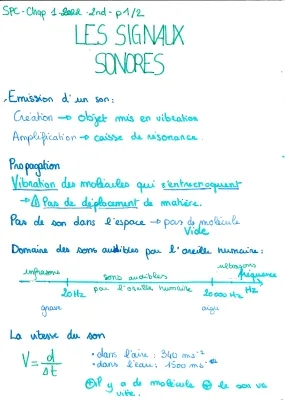 SPC - Chap 1 - 2nd - p1/2
LES SIGNAUX
SONORES
Emission d'un son:
Création → objet mis en vibration
Amplification → caisse de résonance.
Propagation
Vibration des molécules qui s'entrechoquent
→ ⚠ Pas de déplacement de matière.
Pas de son dans l'espace → pas de molécule
Vide
Domaine des sons audibles par l'oreille humaine:
infrasons sons audibles ultrasons
par l'oreille humaine fréquence
20Hz 20000 Hz Hz
grave aigu
La vitesse du son
V = d/Δt
• dans l'aire: 340 ms⁻¹
• dans l'eau: 1500 ms⁻¹
⊕ il y a de molécule ⊕ le son va
vite.